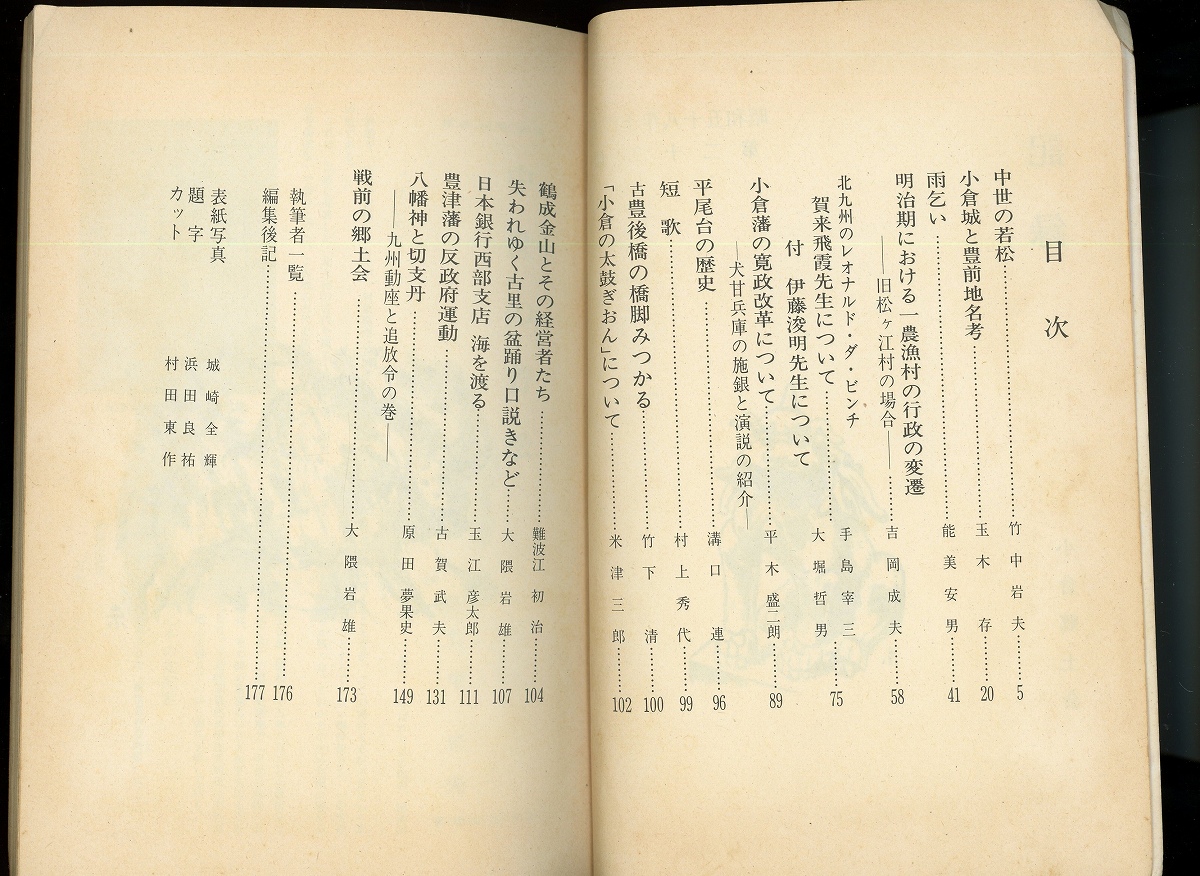 目次
中世の若松……………竹中岩夫……5
小倉城と豊前地名考……………玉木存……20
雨乞い……………能美安男……41
明治期における一農漁村の行政の変遷
――旧松ヶ江村の場合――……吉岡成夫……58
北九州のレオナルド・ダ・ビンチ
賀来飛霞先生について……………手島宰三
付 伊藤浚明先生について
大堀哲男……75
小倉藩の寛政改革について……………平木盛二朗……89
――犬甘兵庫の施銀と演説の紹介――
平尾台の歴史……………溝口連……96
短歌……………村上秀代……99
古豊後橋の橋脚みつかる……………竹下清……100
「小倉の太鼓ぎおん」について……………米津三郎……102
鶴成金山とその経営者たち……………難波江初治……104
失われゆく古里の盆踊り口説きなど……大隈岩雄……107
日本銀行西部支店 海を渡る……………玉江彦太郎……111
豊津藩の反政府運動……………古賀武夫……131
八幡神と切支丹……………原田夢果史……149
――九州動座と追放令の巻――
戦前の郷土会……………大隈岩雄……173
執筆者一覧……………176
編集後記……………177
表紙写真 城崎全輝
題字 浜田良祐
カット 村田東作